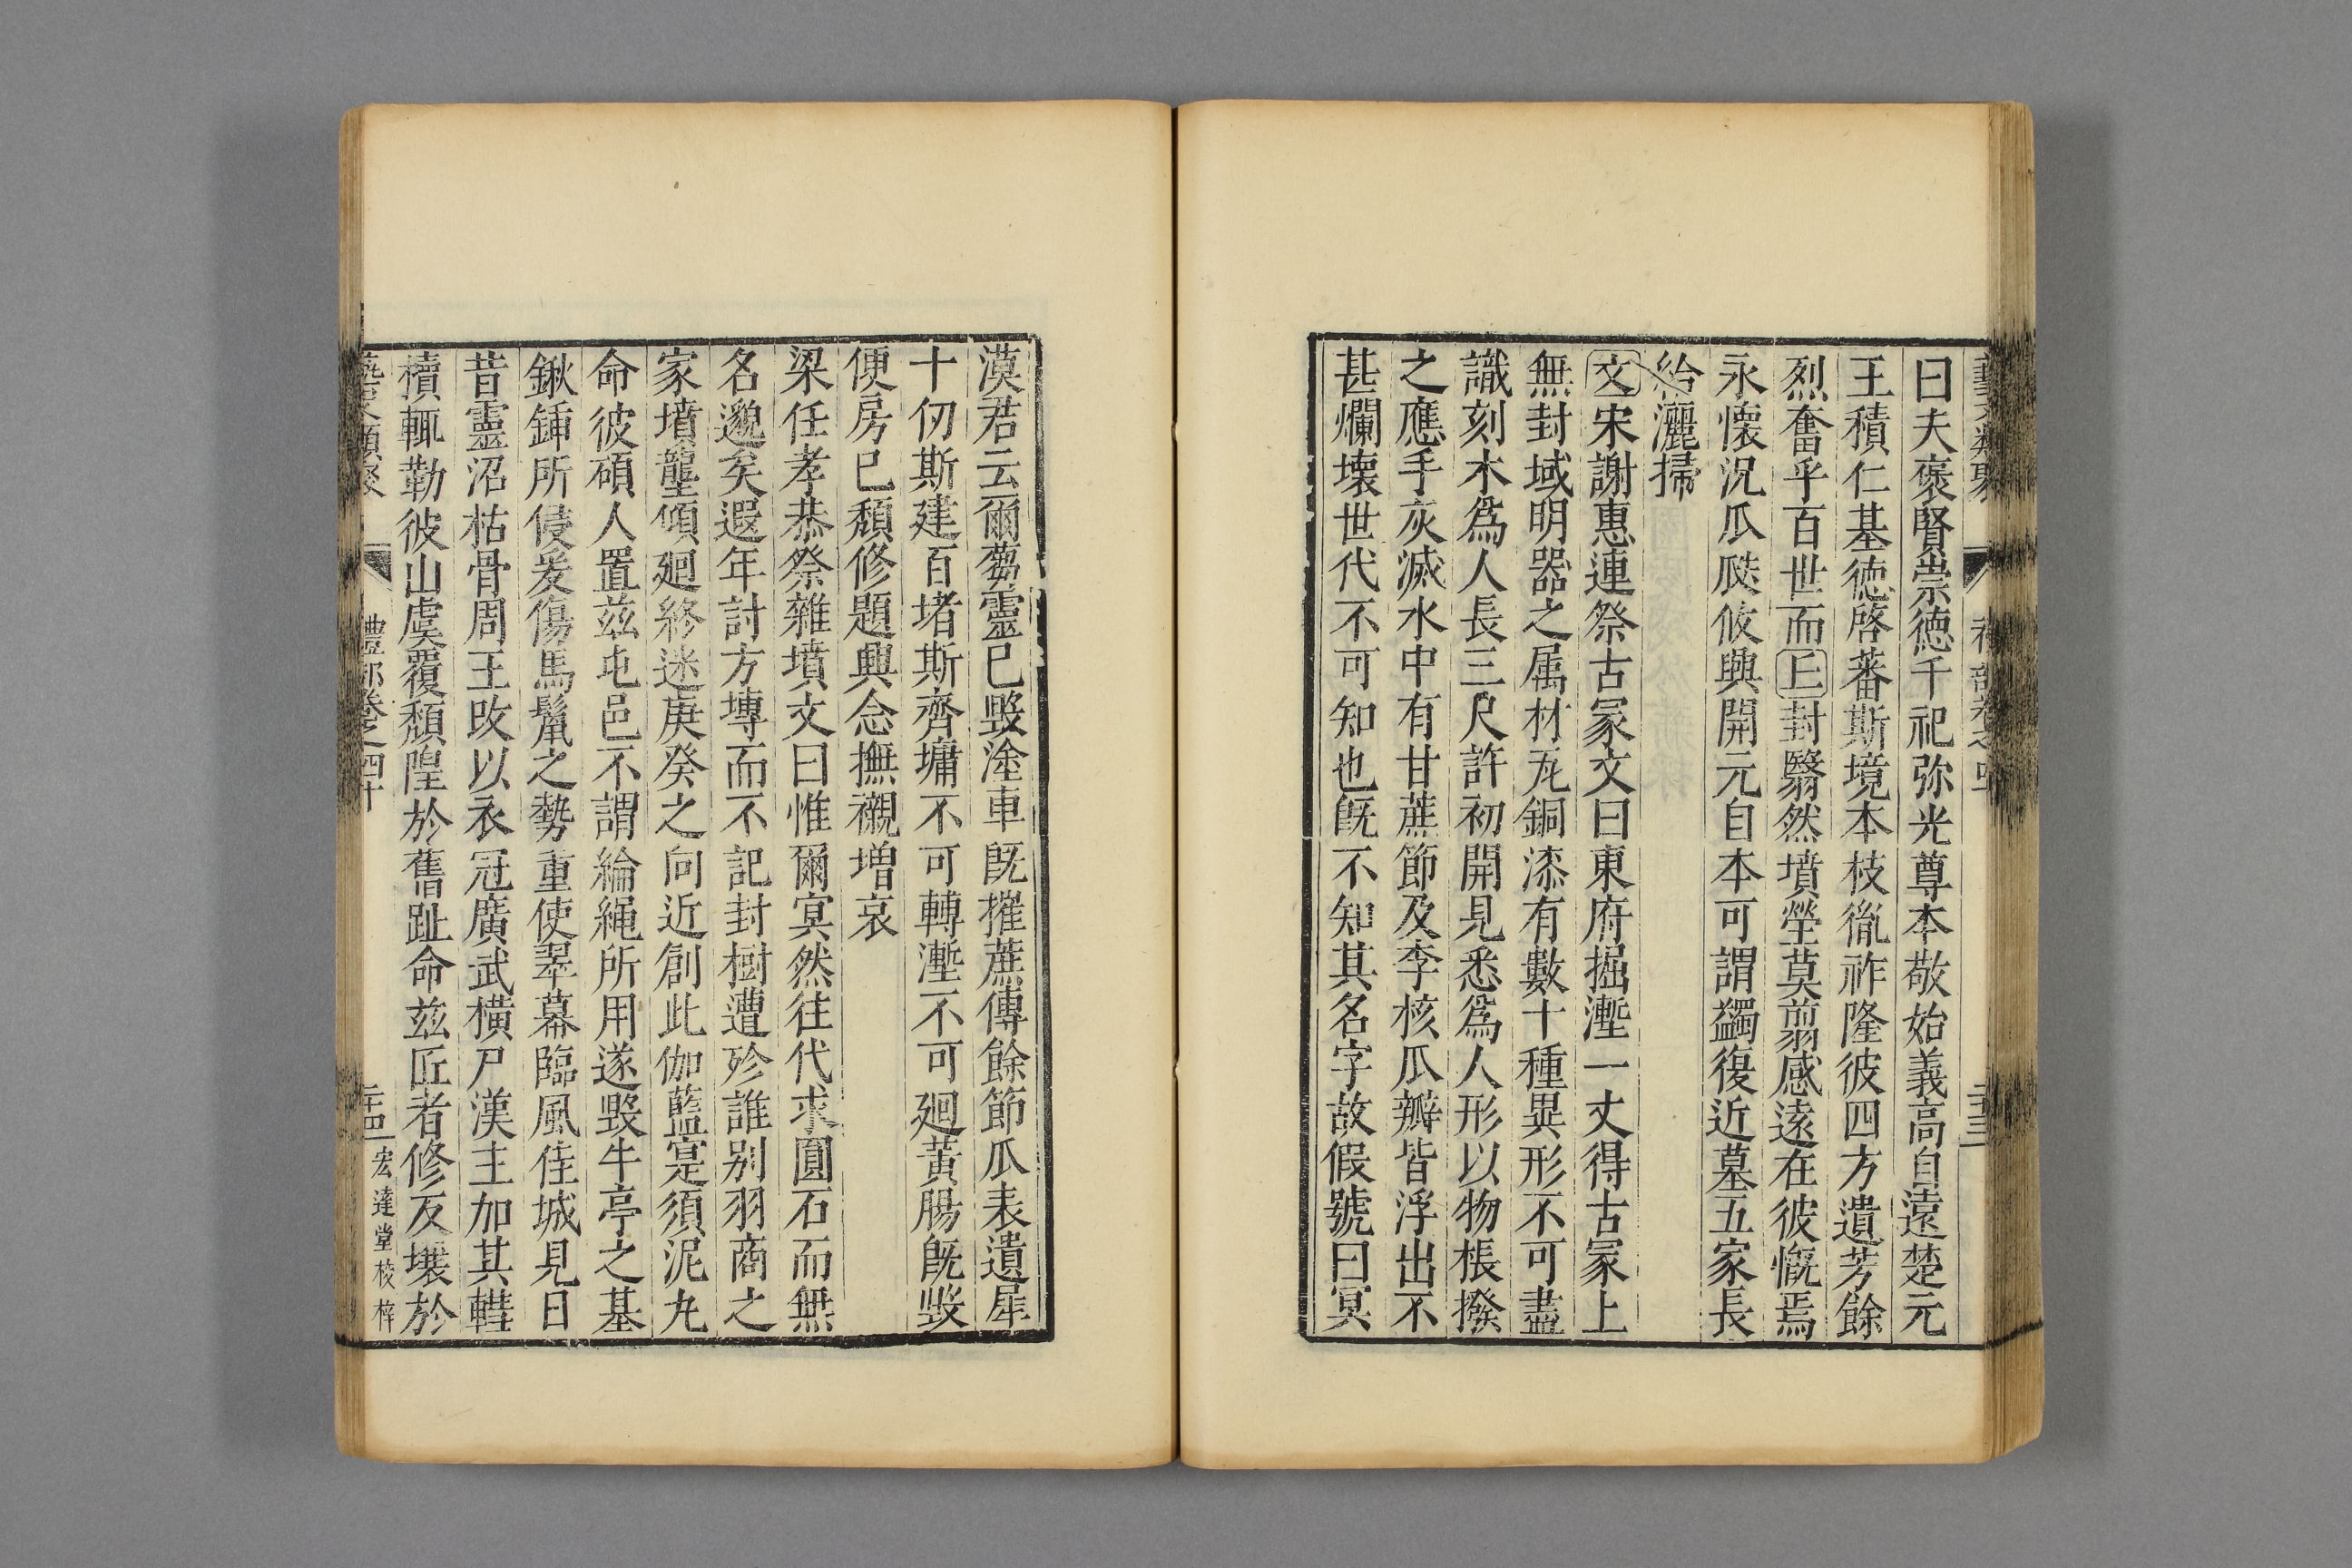 曰夫褒賢崇徳千祀弥光尊本敬始義高自遠楚元
王積仁基徳啓蕃斯境本枝徿祚隆彼四方遺芳餘
烈奮乎百世而丘封翳然墳塋莫翦感遠在彼慨焉
永懐況瓜瓞攸興開元自本可謂蠲復近墓五家長
給灑掃
文宋謝惠連祭古冡文曰東府掘壍一丈得古冡上
無封域明器之属材瓦銅漆有數十種異形不可盡
識刻木爲人長三尺許初開見悉爲人形以物棖撥
之應手灰滅水中有甘蔗節及李核瓜瓣皆浮出不
甚爛壊世代不可知也旣不知其名字故假號曰冥
漠君云爾蒭靈已毀塗車旣摧蔗傳餘節瓜表遺犀
十仞斯建百堵斯齊墉不可轉壍不可廻黃腸旣毀
便房已頽修題興念撫襯増哀
梁任孝恭祭雜墳文曰惟爾冥然往代求圓石而無
名邈矣遐年討方塼而不記封樹遭殄誰别羽商之
家墳壟傾廻終迷庚癸之向近創此伽藍寔須泥丸
命彼碩人置兹屯邑不謂綸繩所用遂毀牛亭之基
鍬鍤所侵爰傷馬鬛之勢重使翠幕臨風佳城見日
昔靈沼枯骨周王改以衣冠廣武橫尸漢主加其轊
櫝輒勒彼山虞覆頽隍於舊趾命兹匠者修反壤於
藝文類聚 禮部卷之四十 二十四 宏達堂校梓